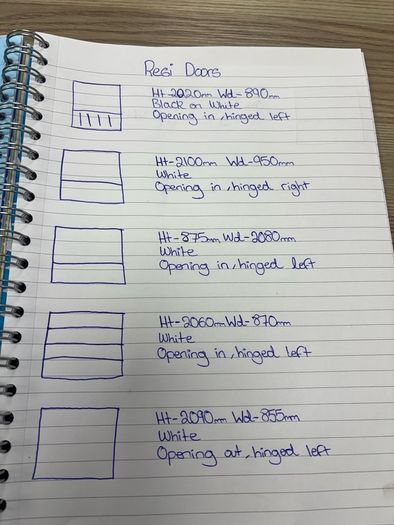 Resi Doors
Ht-2020mm Wd-890mm
Black on White
Opening in, hinged left
Ht-2100mm Wd-950mm
White
Opening in, hinged right
Ht-875mm Wd-2080mm
White
Opening in, hinged left
Ht-2060mm Wd-870mm
White
Opening in, hinged left
Ht-2090mm Wd-855mm
White
Opening out, hinged left